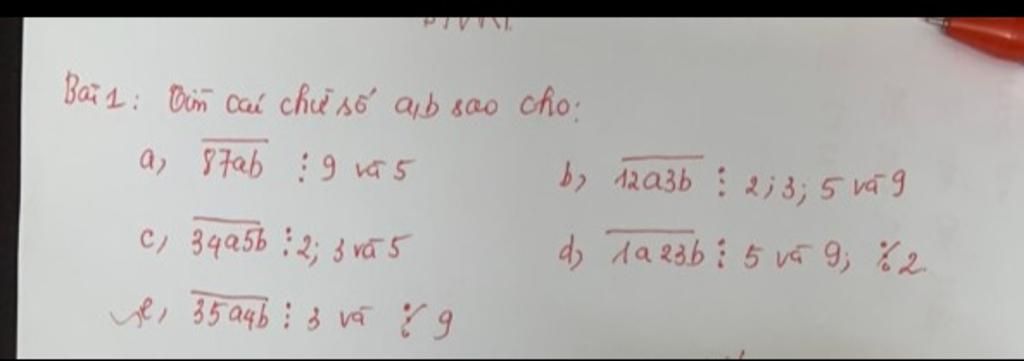 Bài 1: Tìm các chữ số a,b sao cho:
a, 87ab ⋮ 9 và 5
b, 12a3b ⋮ 2; 3; 5 và 9
c, 34a5b ⋮ 2; 3 và 5
d, 1a23b ⋮ 5 và 9; ⋮̸ 2.
e, 35a4b ⋮ 3 và ⋮̸ 9